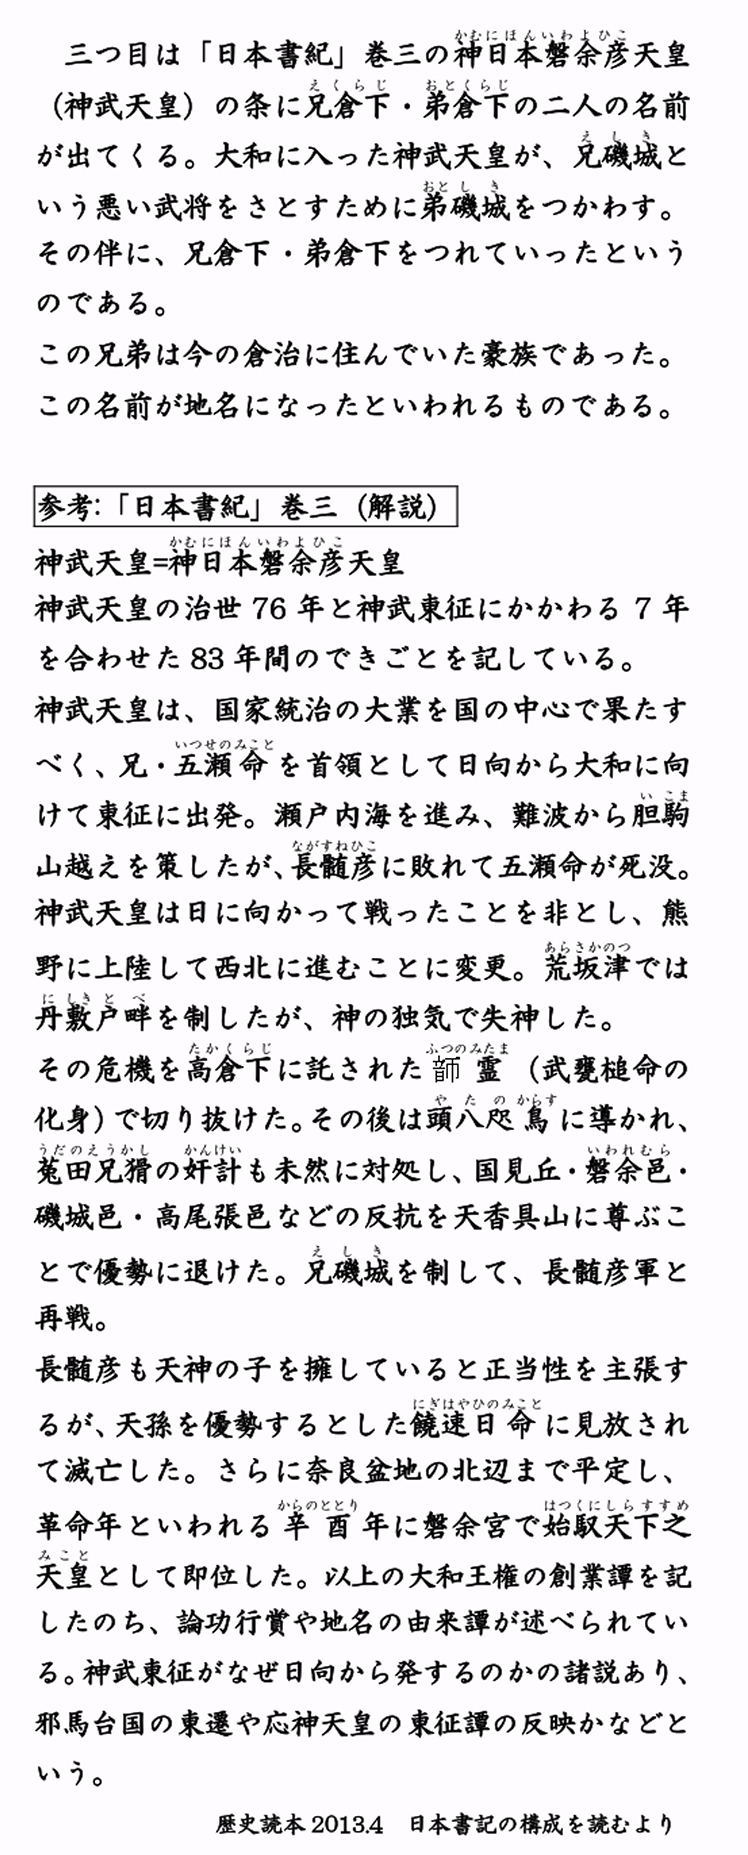 三つ目は「日本書紀」巻三の神日本磐余彦天皇
（神武天皇）の条に兄倉下・弟倉下の二人の名前
が出てくる。大和に入った神武天皇が、兄磯城と
いう悪い武将をさとすために弟磯城をつかわす。
その伴に、兄倉下・弟倉下をつれていったという
のである。
この兄弟は今の倉治に住んでいた豪族であった。
この名前が地名になったといわれるものである。
参考:「日本書紀」巻三（解説）
神武天皇=神日本磐余彦天皇
神武天皇の治世 76 年と神武東征にかかわる 7 年
を合わせた 83 年間のできごとを記している。
神武天皇は、国家統治の大業を国の中心で果たす
べく、兄・五瀬命を首領として日向から大和に向
けて東征に出発。瀬戸内海を進み、難波から胆駒
山越えを策したが、長髄彦に敗れて五瀬命が死没。
神武天皇は日に向かって戦ったことを非とし、熊
野に上陸して西北に進むことに変更。荒坂津では
丹敷戸畔を制したが、神の独気で失神した。
その危機を高倉下に託された 霊（武甕槌命の
化身）で切り抜けた。その後は頭八咫烏に導かれ、
菟田兄猾の奸計も未然に対処し、国見丘・磐余邑・
磯城邑・高尾張邑などの反抗を天香具山に尊ぶこ
とで優勢に退けた。兄磯城を制して、長髄彦軍と
再戦。
長髄彦も天神の子を擁していると正当性を主張す
るが、天孫を優勢するとした饒速日命に見放され
て滅亡した。さらに奈良盆地の北辺まで平定し、
革命年といわれる辛酉年に磐余宮で始馭天下之
天皇として即位した。以上の大和王権の創業譚を記
したのち、論功行賞や地名の由来譚が述べられてい
る。神武東征がなぜ日向から発するのかの諸説あり、
邪馬台国の東遷や応神天皇の東征譚の反映かなどと
いう。
歴史読本 2013.4　日本書記の構成を読むより